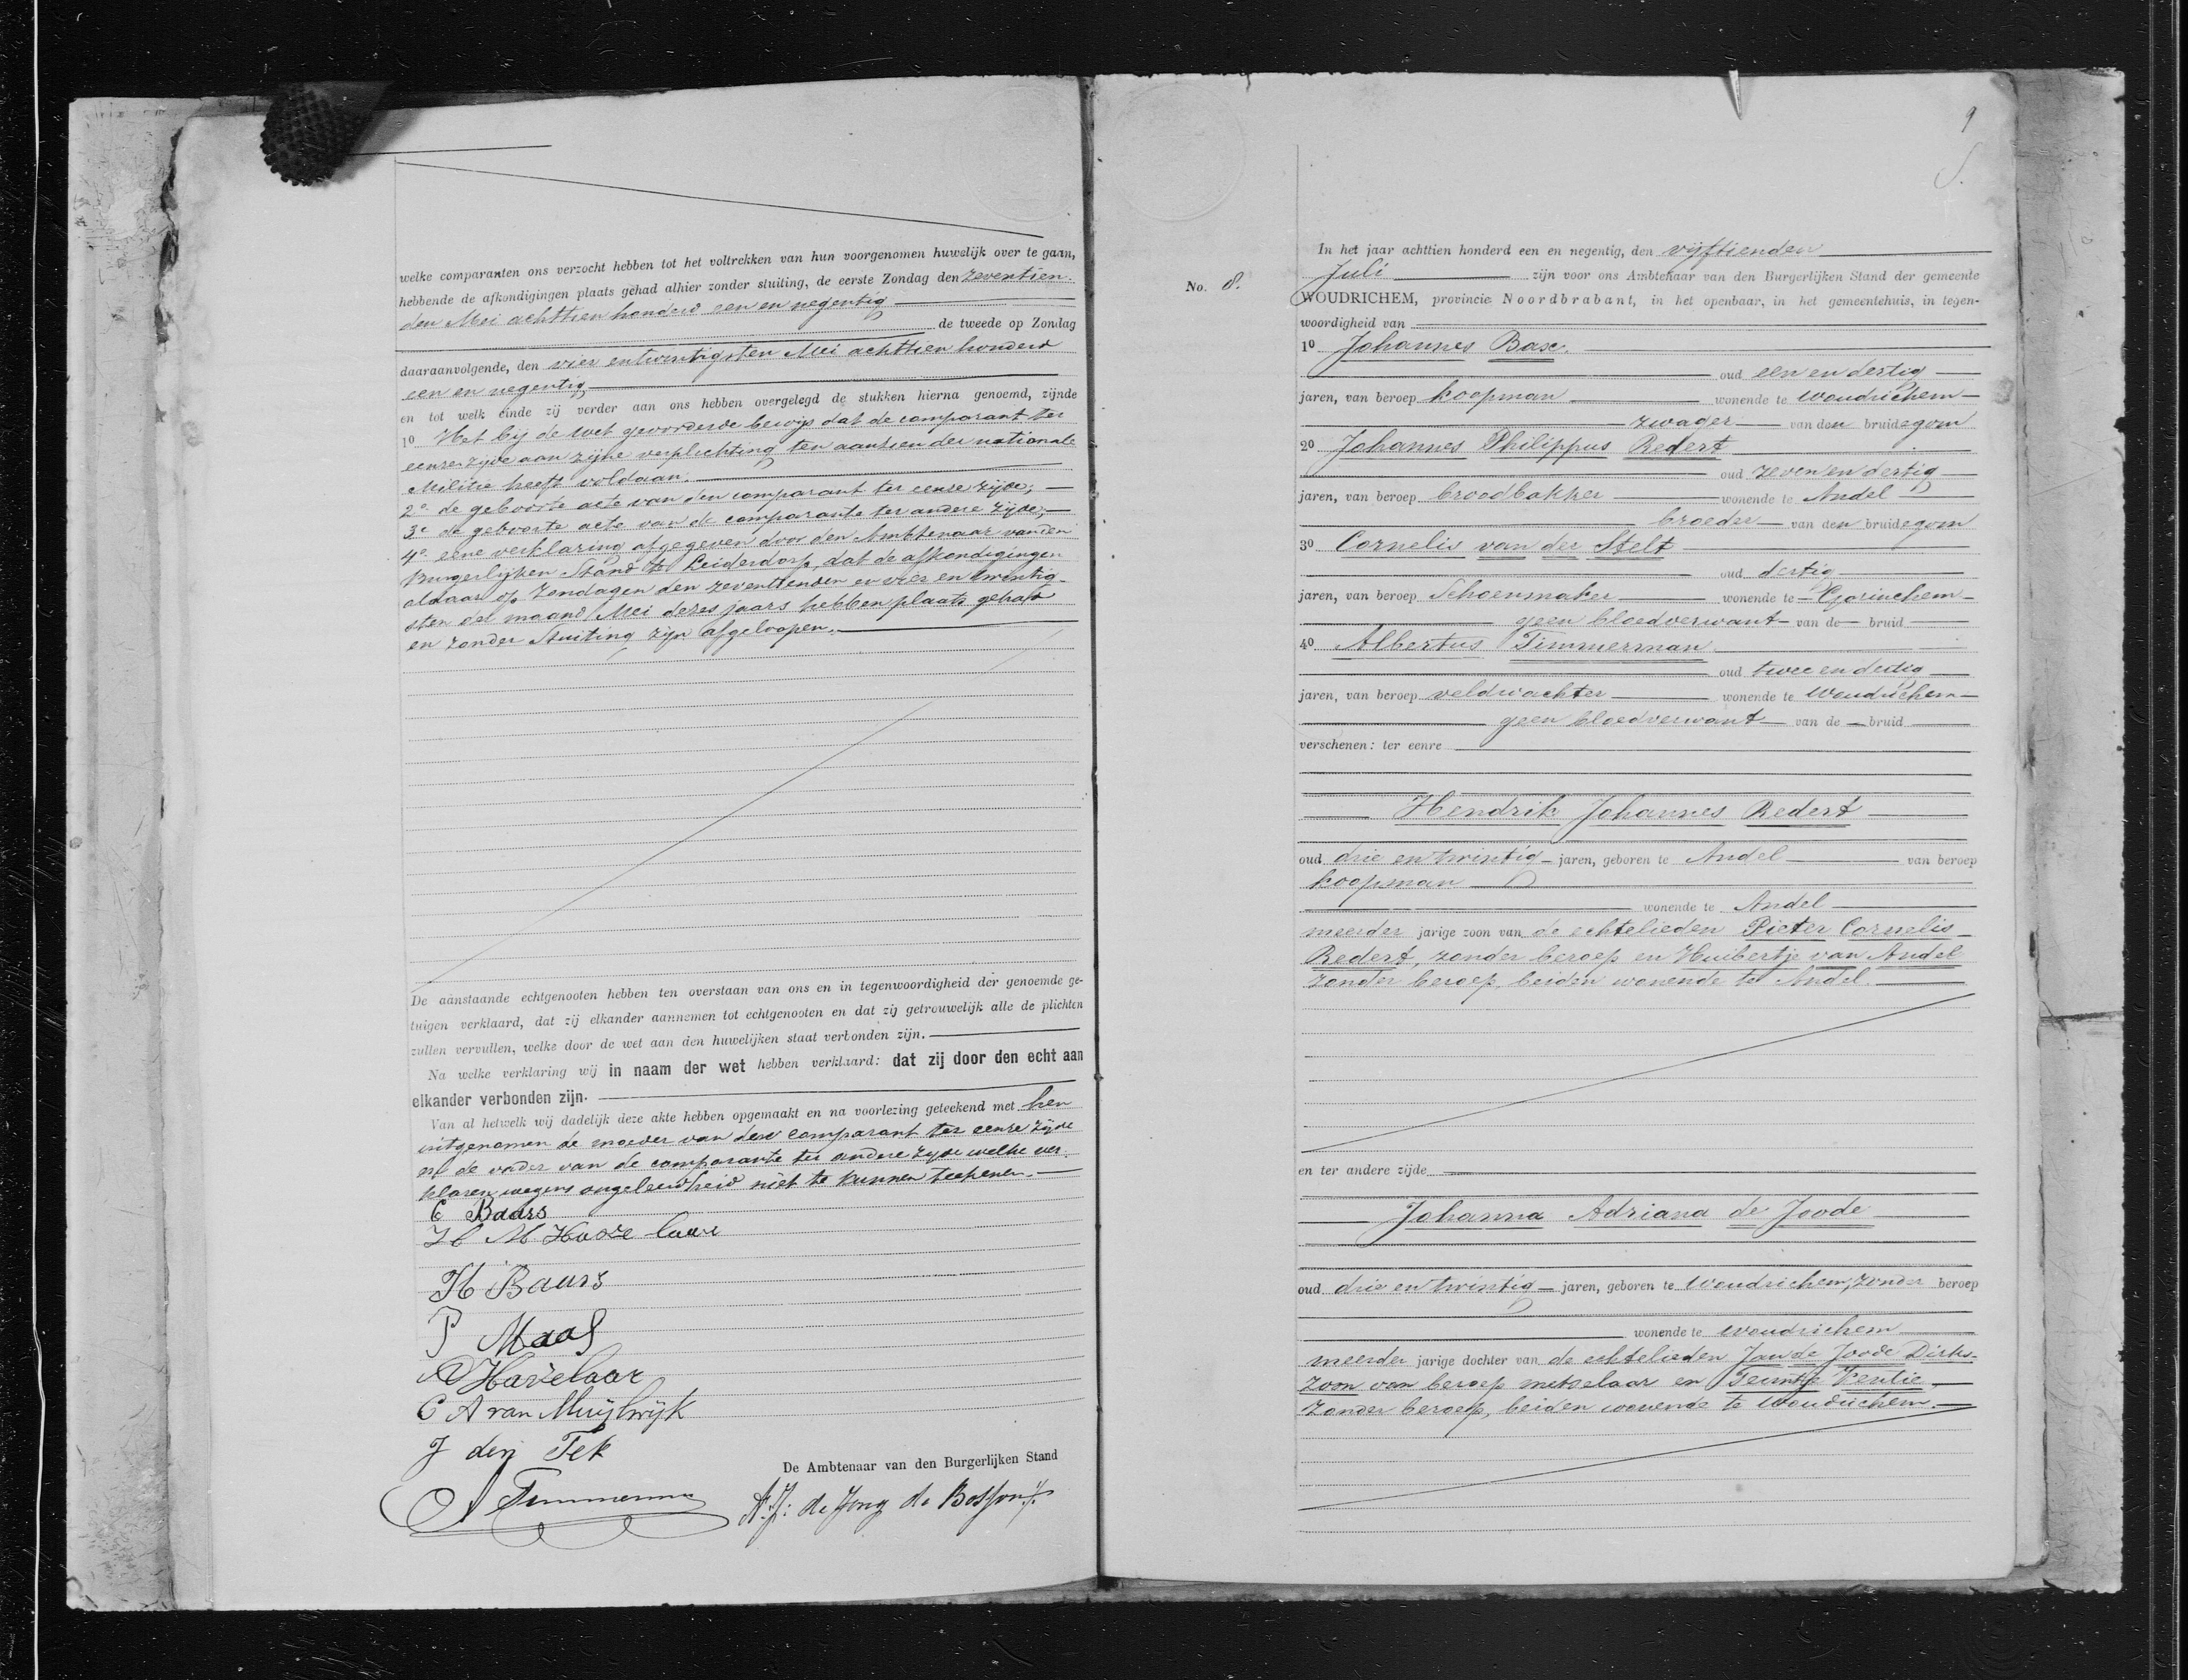 welke comparanten ons verzocht hebben tot het voltrekken van hun voorgenomen huwelijk over te gaan,
hebbende de afkondigingen plaats gehad alhier zonder stuiting, de eerste Zondag den zeventien-
den Mei achttien honderd een en negentig
de tweede op Zondag
daaraanvolgende, den vier en twintigsten Mei achttien honderd
een en negentig
en tot welk einde zij verder aan ons hebben overgelegd de stukken hierna genoemd, zijnde
1o Het bij de wet gevorderde bewijs dat de comparant ter
eenre zijde aan zijne verplichting ten aanzien der nationale
Militie heeft voldaan.
2o de geboorte acte van den comparant ter eenre zijde;
3e de geboorte acte van de comparante ter andere zijde;
4o eene verklaring afgegeven door den Ambtenaar van den
Burgerlijken Stand te Leiderdorp, dat de afkondigingen
aldaar op Zondagen den zeventienden en vier en twintig-
sten der maand Mei dezes jaars hebben plaats gehad
en zonder Stuiting zijn afgeloopen.
De aanstaande echtgenooten hebben ten overstaan van ons en in tegenwoordigheid der genoemde ge-
tuigen verklaard, dat zij elkander aannemen tot echtgenooten en dat zij getrouwelijk alle de plichten
zullen vervullen, welke door de wet aan den huwelijken staat verbonden zijn.
Na welke verklaring wij in naam der wet hebben verklaard: dat zij door den echt aan
elkander verbonden zijn.
Van al hetwelk wij dadelijk deze akte hebben opgemaakt en na voorlezing geteekend met hen
uitgenomen de moeder van den comparant ter eenre zijde
en de vader van de comparante ter andere zijde welke ver-
klaren wegens ongeleerdheid niet te kunnen teekenen.
C Baars
M Hazelaar
H Baars
P Maas
A Hazelaar
C A van Muijlwijk
J den Tek
A Timmerman
De Ambtenaar van den Burgerlijken Stand
de Jong de Bosson
9
No. 8.
In het jaar achttien honderd een en negentig, den vijftienden
Juli zijn voor ons Ambtenaar van den Burgerlijken Stand der gemeente
WOUDRICHEM, provincie Noordbrabant, in het openbaar, in het gemeentehuis, in tegen-
woordigheid van
1o Johannes Bax.
oud een en dertig
jaren, van beroep koopman wonende te Woudrichem
zwager van den bruidegom
2o Johannes Philippus Redert
oud zeven en dertig
jaren, van beroep broodbakker wonende te Andel
broeder van den bruidegom
3o Cornelis van der Stelt
oud dertig
jaren, van beroep Schoenmaker wonende te Gorinchem
geen bloedverwant van de bruid
4o Albertus Timmerman
oud twee en dertig
jaren, van beroep veldwachter wonende te Woudrichem
geen bloedverwant van de bruid
verschenen: ter eenre
Hendrik Johannes Redert
oud drie en twintig jaren, geboren te Andel van beroep
koopman
wonende te Andel
meerder jarige zoon van de echtelieden Pieter Cornelis
Redert, zonder beroep en Huibertje van Andel
zonder beroep, beiden wonende te Andel.
en ter andere zijde
Johanna Adriana de Joode
oud drie en twintig jaren, geboren te Woudrichem, zonder beroep
wonende te Woudrichem
meerder jarige dochter van de echtelieden Jan de Joode Dirks-
zoon van beroep metselaar en Teuntje
zonder beroep, beiden wonende te Woudrichem.